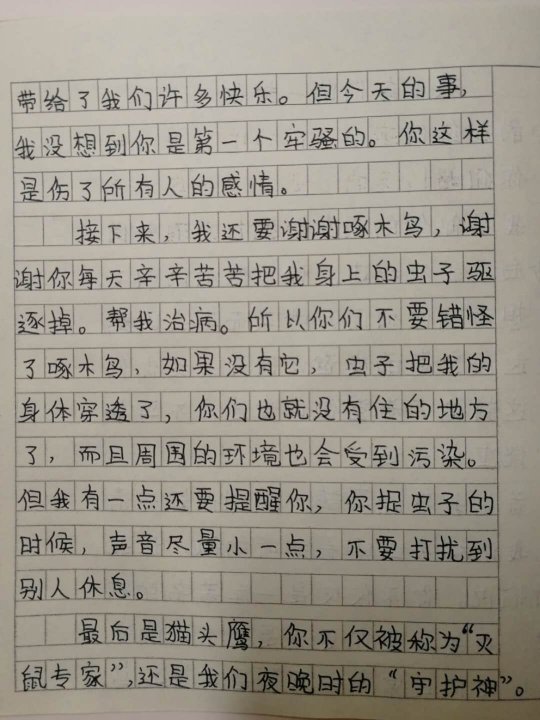 带给了我们许多快乐。但今天的事,
我没想到你是第一个牢骚的。你这样
是伤了所有人的感情。
接下来,我还要谢谢啄木鸟,谢
谢你每天辛辛苦苦把我身上的虫子驱
逐掉。帮我治病。所以你们不要错怪
了啄木鸟,如果没有它,虫子把我的
身体穿透了,你们也就没有住的地方
了,而且周围的环境也会受到污染。
但我有一点还要提醒你,你捉虫子的
时候,声音尽量小一点,不要打扰到
别人休息。
最后是猫头鹰,你不仅被称为“灭
鼠专家”,还是我们夜晚时的“守护神”。